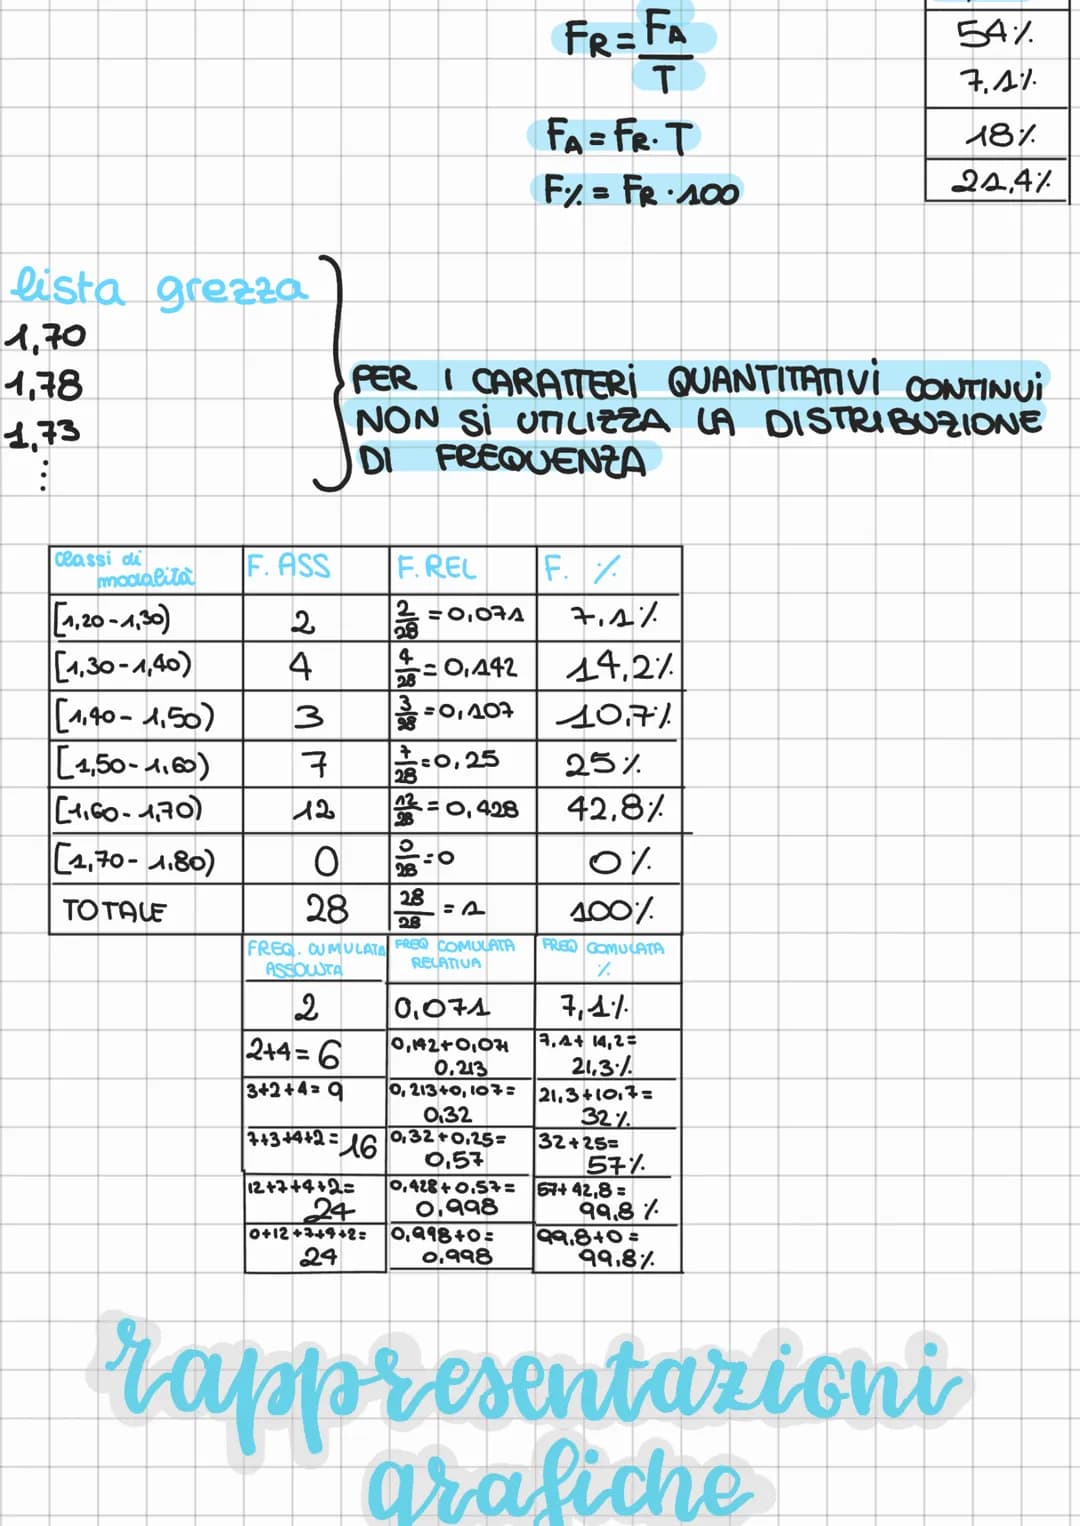 FR = FA
T
FA = FR · T
F% = FR · 100
54%
7,1%
18%
21,4%
lista grezza
1,70
1,78
1,73
⋮
PER I CARATTERi QUANTITATIVi CONTINUi
NON Si UTILIZZA LA DISTRIBUZIONE
DI FREQUENZA
classi di modalità F. ASS F. REL F. %
[1,20-1,30) 2 2/28 = 0,071 7,1%
[1,30-1,40) 4 4/28 = 0,142 14,2%
[1,40-1,50) 3 3/28 = 0,107 10,7%
[1,50-1,60) 7 7/28 = 0,25 25%
[1,60-1,70) 12 12/28 = 0,428 42,8%
[1,70-1,80) 0 0/28 = 0 0%
TOTALE 28 28/28 = 1 100%
FREQ. CUMULATA FREQ COMULATA FREQ COMULATA
ASSOLUTA RELATIVA %
2 0,071 7,1%
2+4= 6 0,142+0,071 7,1+14,2=
0,213 21,3%
3+2+4= 9 0,213+0,107= 21,3+10,7=
0,32 32%
7+3+4+2= 16 0,32+0,25= 32+25=
0,57 57%
12+7+4+2= 0,428+0,57= 57+42,8=
24 0,998 99,8%
0+12+7+4+2= 0,998+0= 99,8+0=
24 0,998 99,8%
rappresentazioni
grafiche